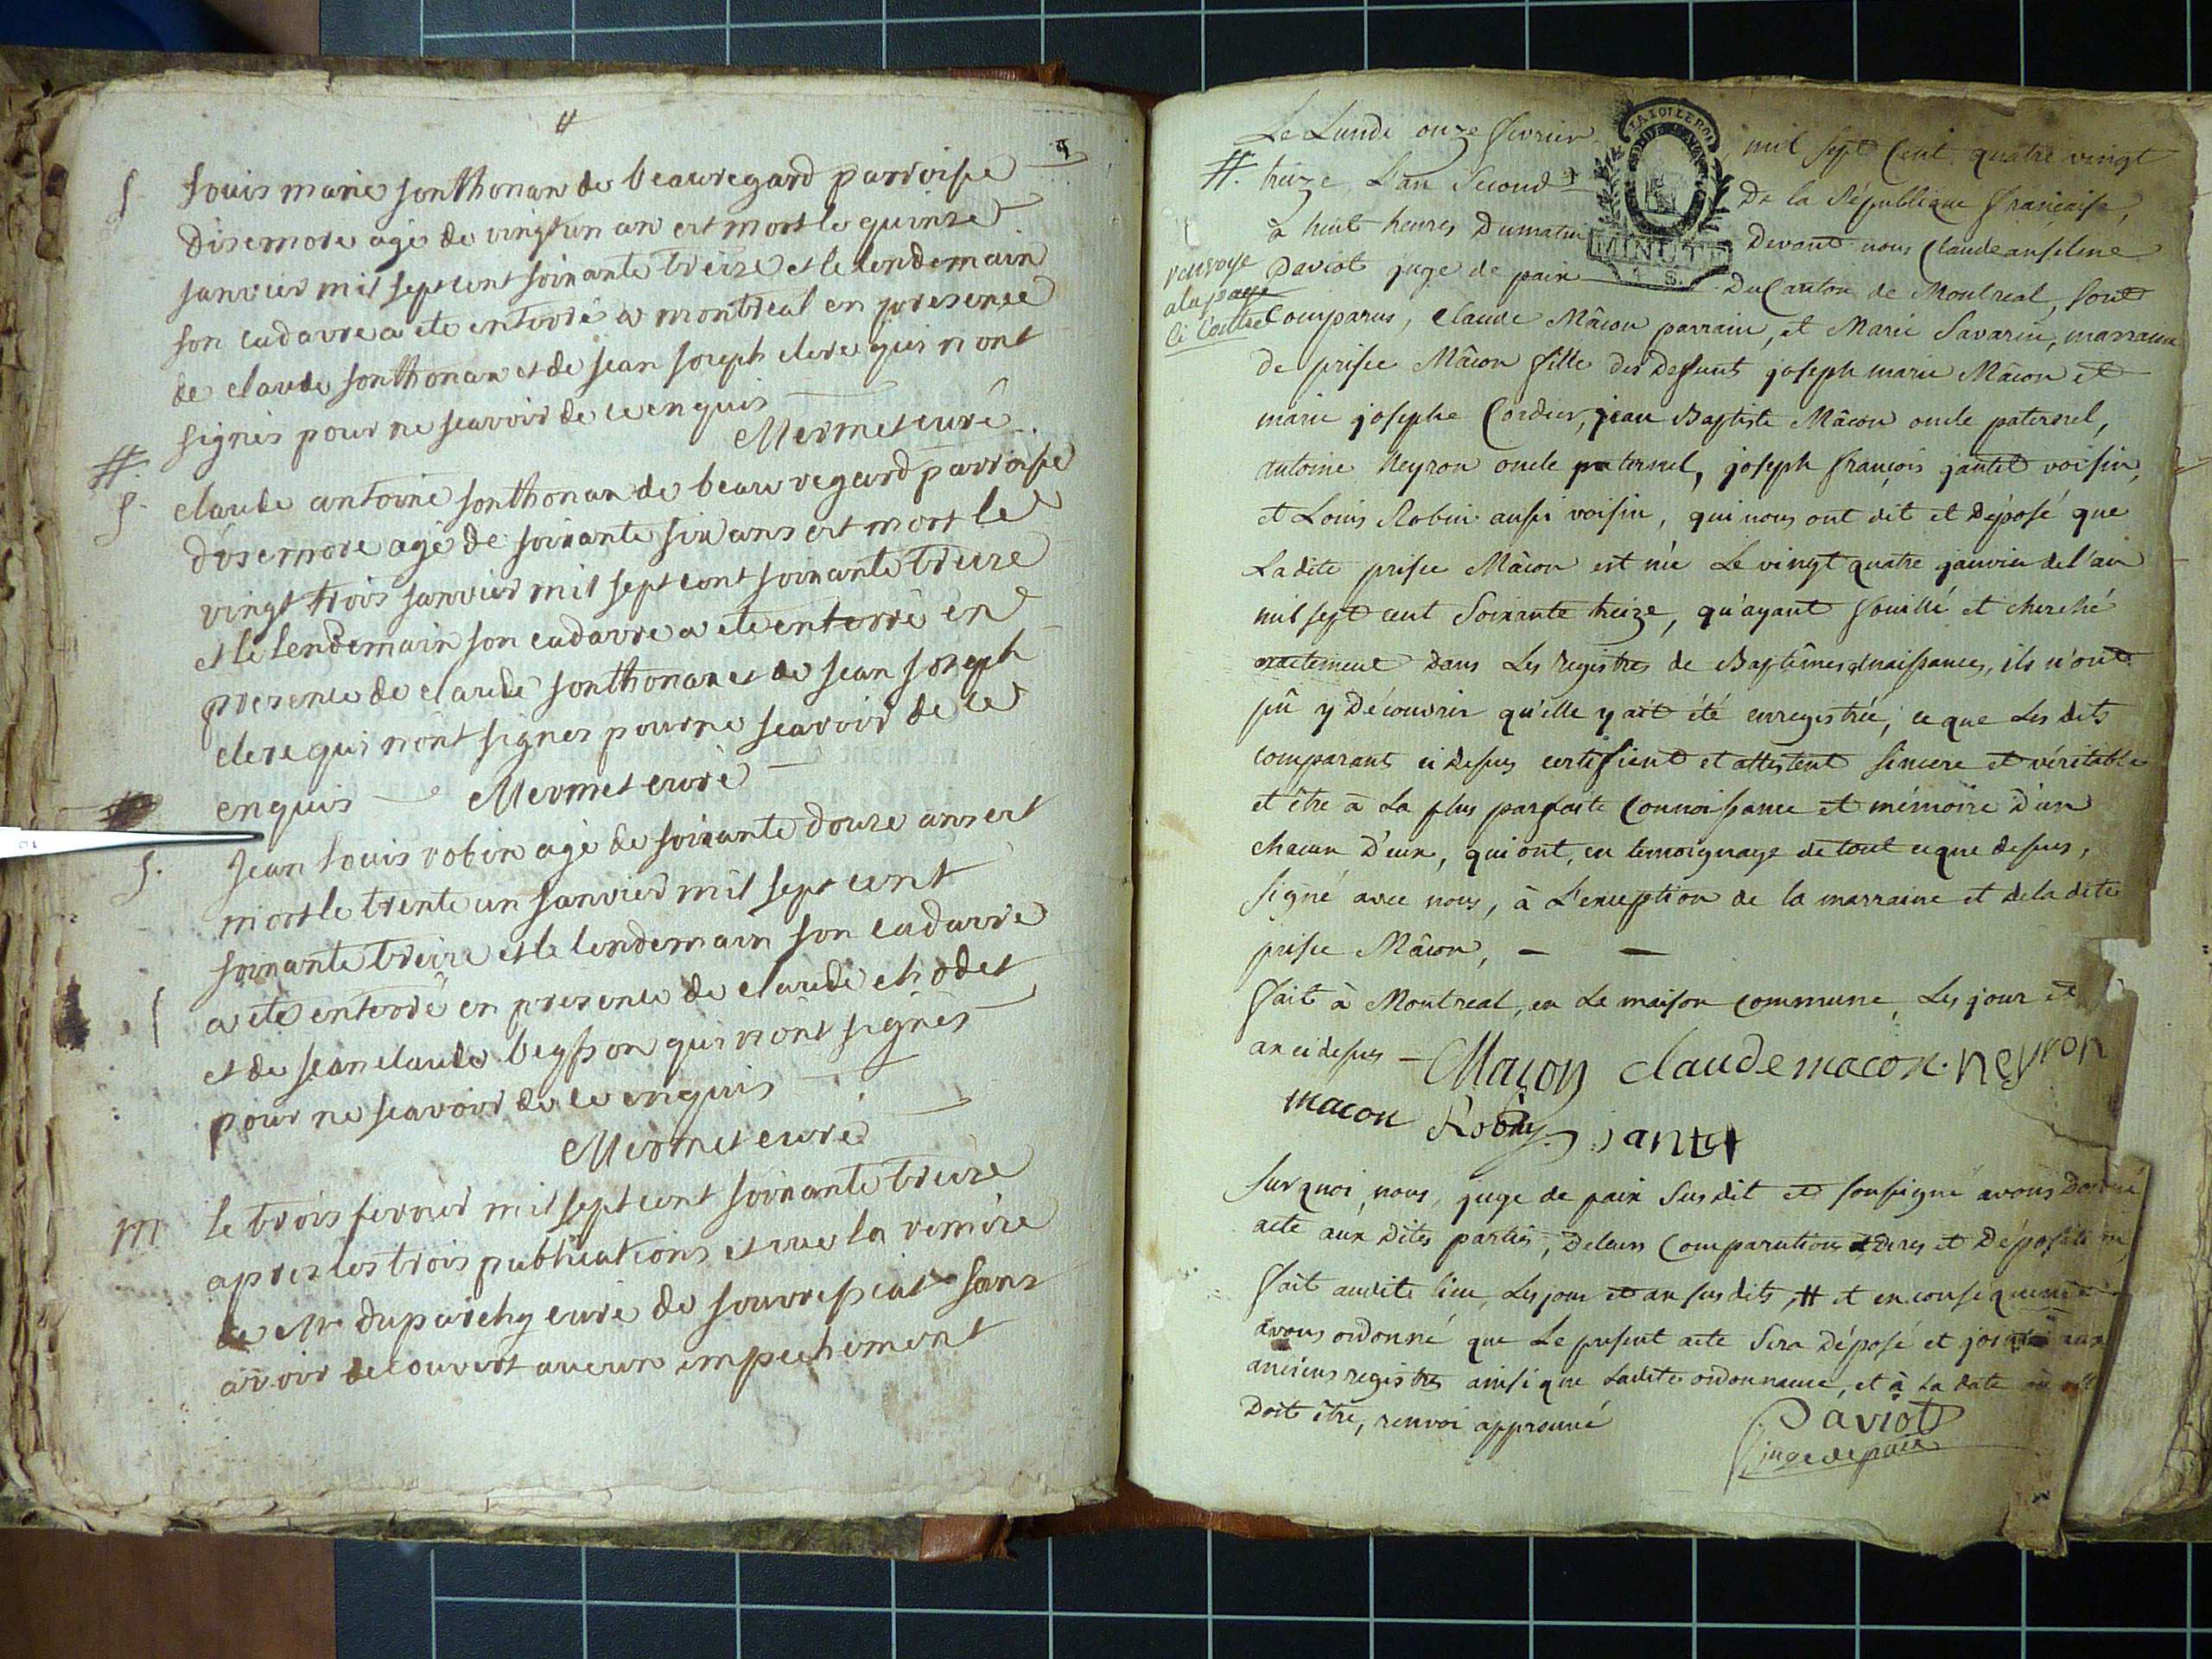 #
9
S. Louis marie sonthonax de beauregard parroisse
disernore agé de vingt un an est mort le quinze
janvier mil sept cent soixante treize et le lendemain
son cadavre a ete enterré a montreal en presence
de claude sonthonax et de jean joseph clerc qui nont
signes pour ne scavoir de ce enquis
Mermet curé
#.
S. claude antoine sonthonax de beauregard parroisse
disernore agé de soixante six ans est mort le
vingt trois janvier mil sept cent soixante treize
et le lendemain son cadavre a ete enterré en
presence de claude sonthonax et de jean joseph
clerc qui nont signes pour ne scavoir de ce
enquis Mermet curé
S. Jean Louis robin agé de soixante douze ans est
mort le trente un janvier mil sept cent
soixante treize et le lendemain son cadavre
a ete enterré en presence de claude chodet
et de jean claude beysson qui nont signes
pour ne scavoir de ce enquis
Mermet curé
m le trois fevrier mil sept cent soixante treize
apres les trois publications et vue la remise
de Mr duparchy curé de sans
avoir decouvert aucun impechement
Le Lundi onze fevrier mil sept Cent quatre vingt
#. treize, L'an Second De la République française,
à huit heures Du matin Devant nous Claude anselme
LA LOI LE ROI
MINUTE
1 S.
renvoye
a la page
ci contre
Daviot juge de paix Du Canton de Montreal, sont
Comparus, Claude Mâcon parrain, et Marie Savarin, marraine
de prisce Mâcon fille des Defunts joseph marie Mâcon et
marie josephe Cordier, jean Baptiste Mâcon oncle paternel,
antoine Neyron oncle paternel, joseph françois jantet voisin,
et Louis Robin aussi voisin, qui nous ont dit et Déposé que
Ladite prisce Mâcon est née Le vingt quatre janvier de l'an
mil sept cent Soixante treize, qu'ayant fouillé et cherché
exactement Dans Les registres de Baptêmes et naissances, ils n'ont
pû y Découvrir qu'elle y ait été enregistrée, ce que Les dits
comparants ci dessus certifient et attestent sincere et véritable
et être à La plus parfaite Connoissance et mémoire d'un
chacun D'eux, qui ont, en temoignage de tout ce que dessus,
Signé avec nous, à L'exception de la marraine et de la dite
prisce Mâcon, — —
fait à Montreal, en La maison Commune, Les jour et
an ci dessus — Maçon Claude macon. neyron
macon Robin jantet
Sur quoi, nous, juge de paix Susdit et soussigné avons Donné
acte aux Dites parties, De leurs Comparutions, dires et Déposition,
fait audite lieu, Les jour et an susdits, # et en consequence
avons ordonné que Le present acte Sera Déposé et joint aux
anciens registres ainsi que Ladite ordonnance, et à La date où
Doit être, renvoi approuvé
Daviot
juge de paix